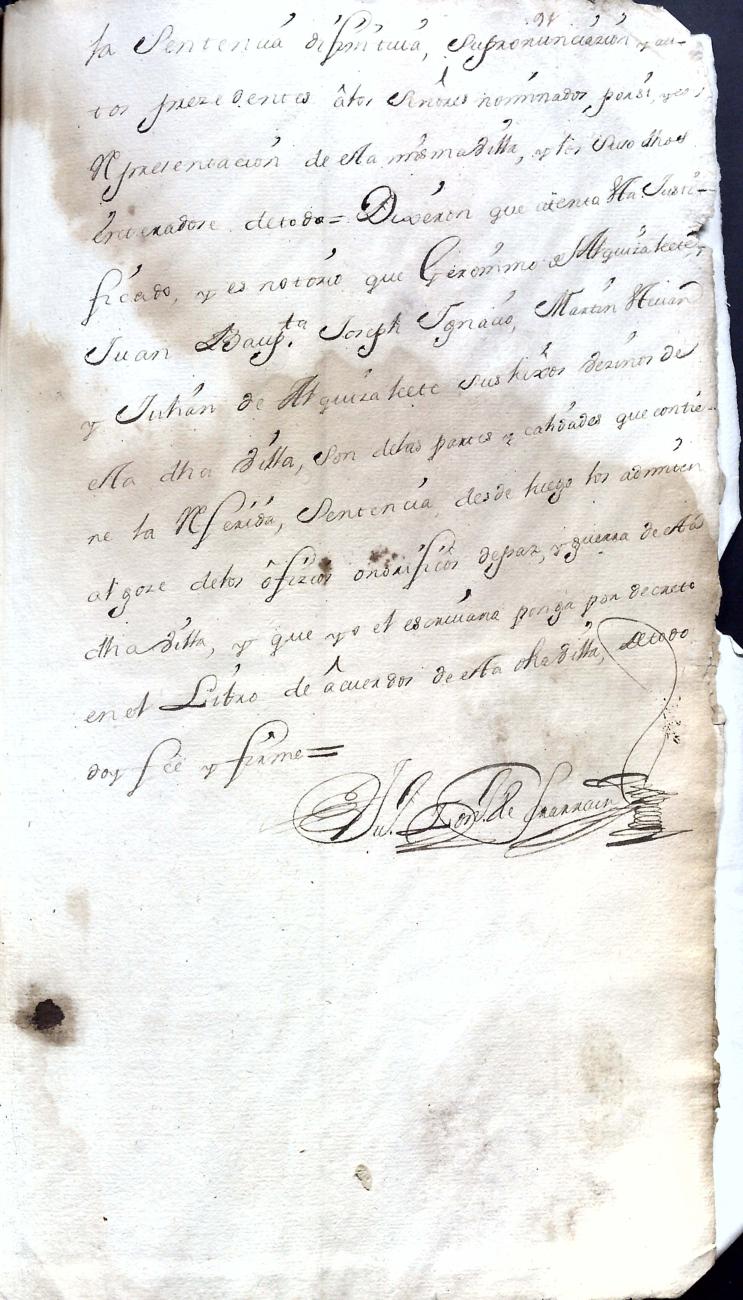 la Sentencia difinitiua, supronunciazion, y au-
tos prezedentes âlos Señores nominados, porsi, y en
Representacion de esta misma Villa, y los suso dhos
enterados de todo= Dixeron que atento esta Justi-
ficado, y es notorio que Geronimo de Alquizalete,
Juan Baup.ta Joseph Ygnacio, Martin
y Julian de Alquizalete sus hixos vezinos de
esta dha Villa, son delas partes y calidades que contie-
ne la Referida, Sentencia, desde luego los admiten
al goze delos ôfizios onorificos depaz, y guerra de esta
dha Villa, y que yo el escriuano ponga por decreto
en el Libro de acuerdos de esta dha Villa, de todo
doy feé y firme=
de Yrarrain